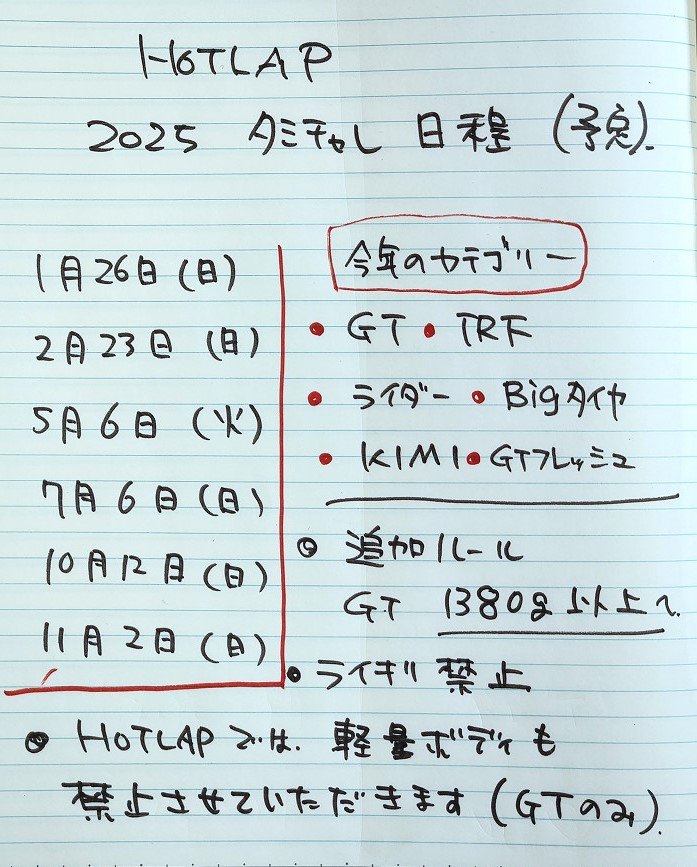 HOTLAP
2025 タミチャレ 日程 (予定).
1月26日(日)
2月23日(日)
5月6日(火)
7月6日(日)
10月12日(日)
11月2日(日)
今年のカテゴリー
• GT • TRF
• ライダー • Bigタイヤ
• KIMI • GTフレッシュ
• 追加ルール
GT 1380g以上へ
• ライキリ 禁止
• HOTLAPでは、軽量ボディも
禁止させていただきます(GTのみ).